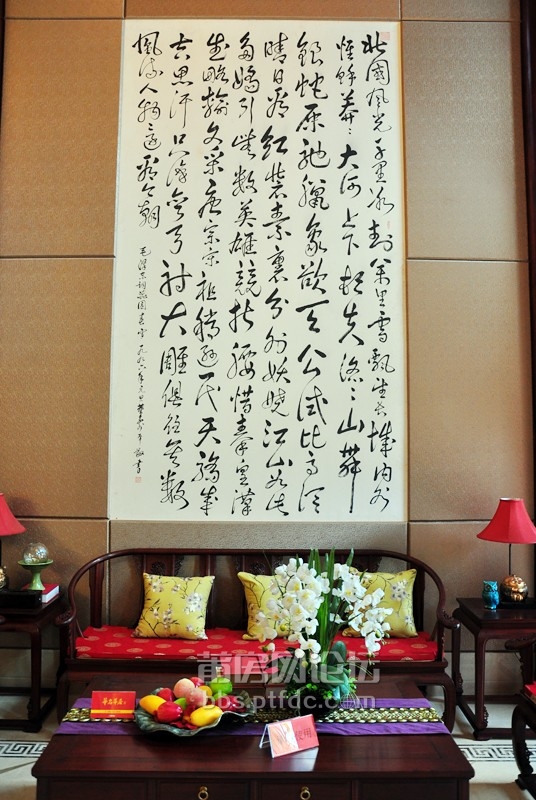 北國風光千里冰封萬里雪飄望長城內外
惟餘莽〻大河上下頓失滔〻山舞
銀蛇原馳蠟象欲與天公試比高須
晴日看紅裝素裹分外妖嬈江山如此
多嬌引無數英雄競折腰惜秦皇漢
武略輸文采唐宗宋祖稍遜一代天驕成
吉思汗只識彎弓射大雕俱往矣數
風流人物還看今朝
毛澤東詞沁園春雪一九九六年元旦 敬書
莆房网论坛
bbs.ptfdc.com